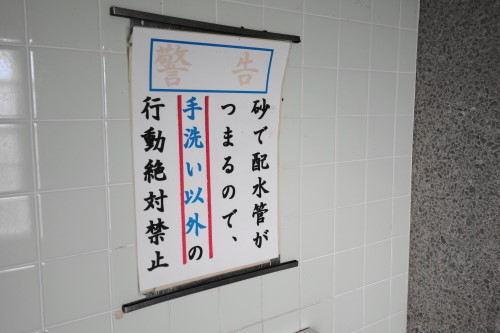 警告
砂で配水管が
つまるので、
手洗い以外の
行動絶対禁止